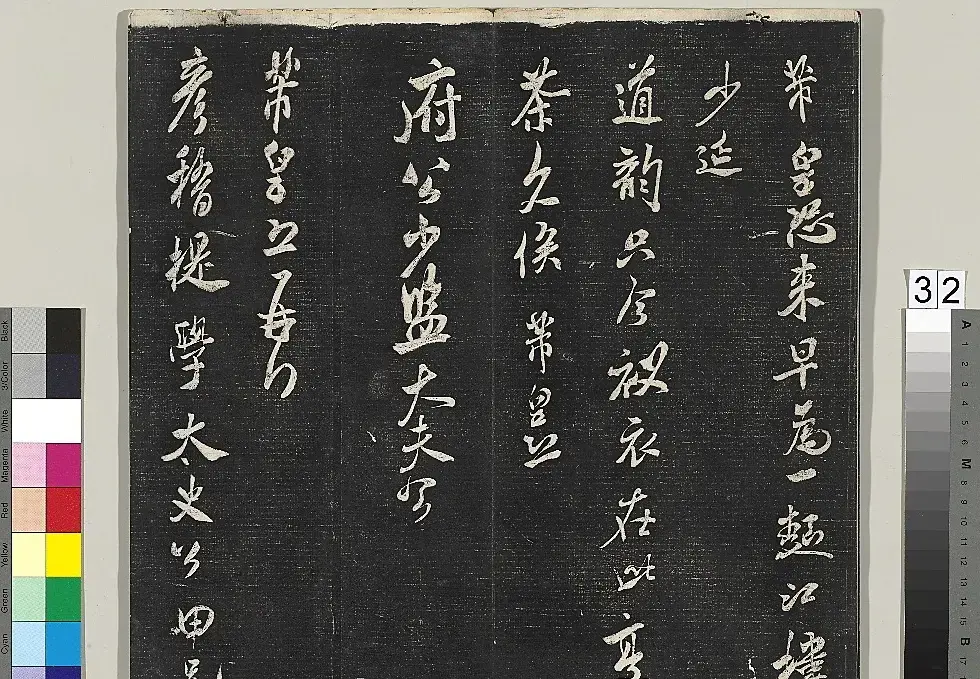 芾皇恐来早為一麵江楼
少延
道韵只今被衣在此亭
茶久俟 芾皇恐
府公少監大夫公
芾皇恐再拜
彦稽提學太史公甲兄
32
Black
3/Color
White
Magenta
Red
Yellow
Green
Cyan
A 1 2 3 4 5 6 M 8 9 10 11 12 13 14 15 B 17